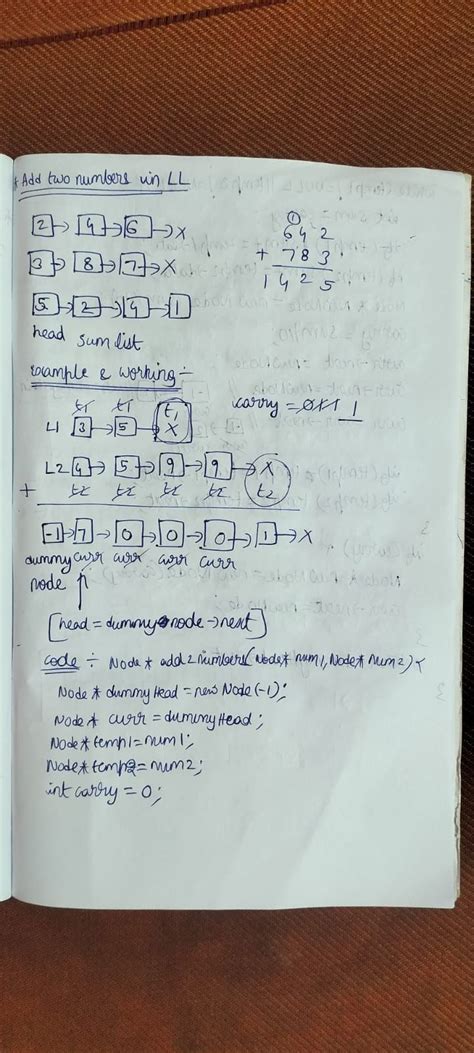 * Add two numbers in LL
2 → 4 → 6 → X
3 → 8 → 7 → X
5 → 2 → 4 → 1
head sum list
1
642
+ 783
1425
Example & working ÷
t1 t1 t1
L1 3 → 5 → X
carry = 0 1 1 1
L2 4 → 5 → 9 → 9 → X
+ t2 t2 t2 t2 t2
-1 → 7 → 0 → 0 → 0 → 1 → X
dummy curr curr curr curr
node
[head = dummy node → next]
code ÷ Node* add2numbers(Node* num1, Node* num2) {
Node* dummyHead = new Node(-1);
Node* curr = dummyHead;
Node* temp1 = num1;
Node* temp2 = num2;
int carry = 0;